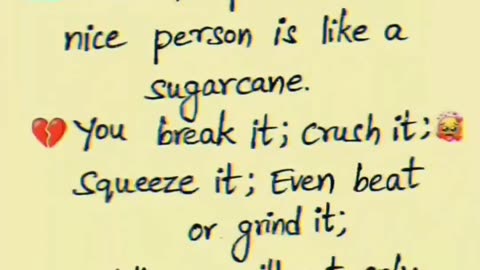 nice person is like a
sugarcane.
💔 You break it; Crush it; 
Squeeze it; Even beat
or grind it;